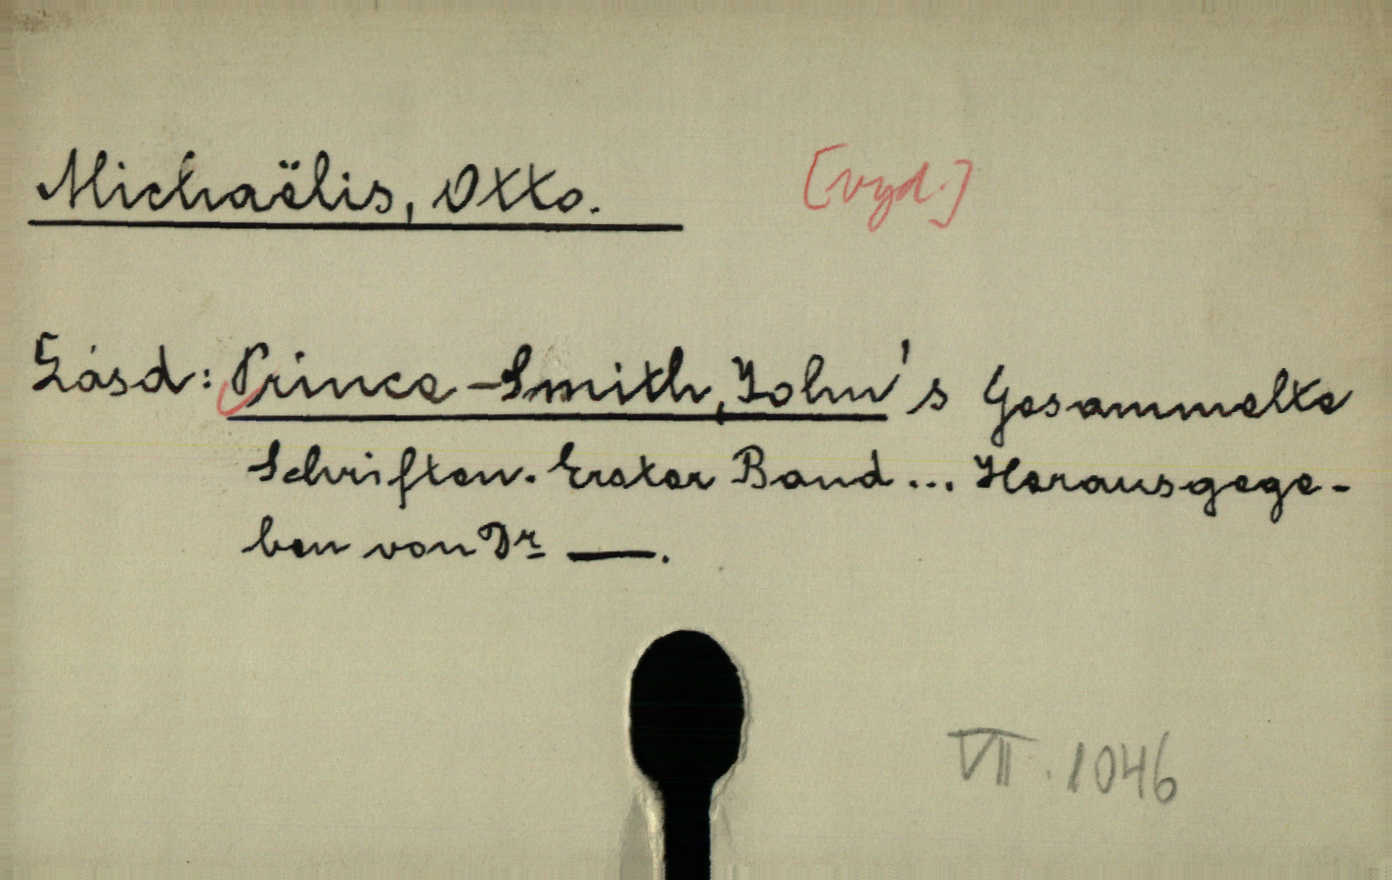 Michaëlis, Otto. [vyd.]
Lásd: Prince-Smith, John's Gesammelte
Schriften. Erster Band ... Herausgege-
ben von Dr —.
VII. 1046